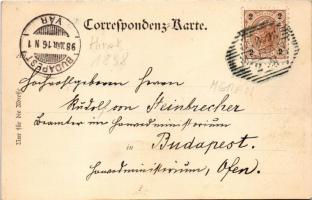 Correspondenz-Karte.
2 2
BUDAPEST
98 NOV. 16 N 1
VÁR
1898
Hochwohlgeboren Herrn
Rudolf von Steinbrecher
Beamter im Honvedministerium
in Budapest.
Honvedministerium, Ofen.
Nur für die Adresse